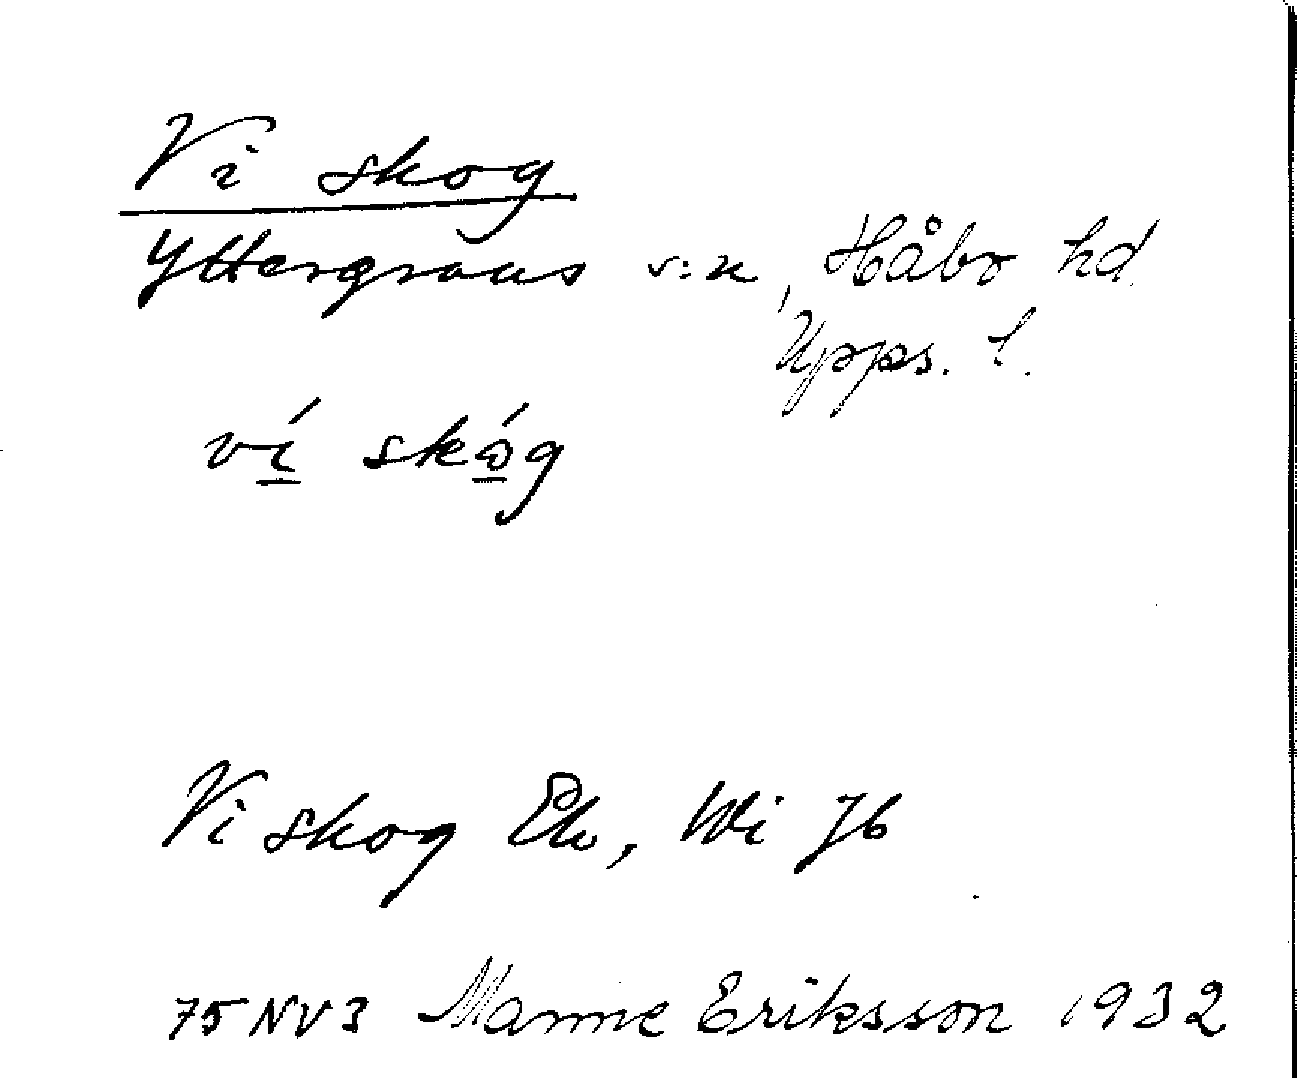 Vi skog
Yttergrans s:n, Håbo hd
Upps. l.
ví skóg
Vi skog Ek, Wi Jb
75 NV3 Manne Eriksson 1932